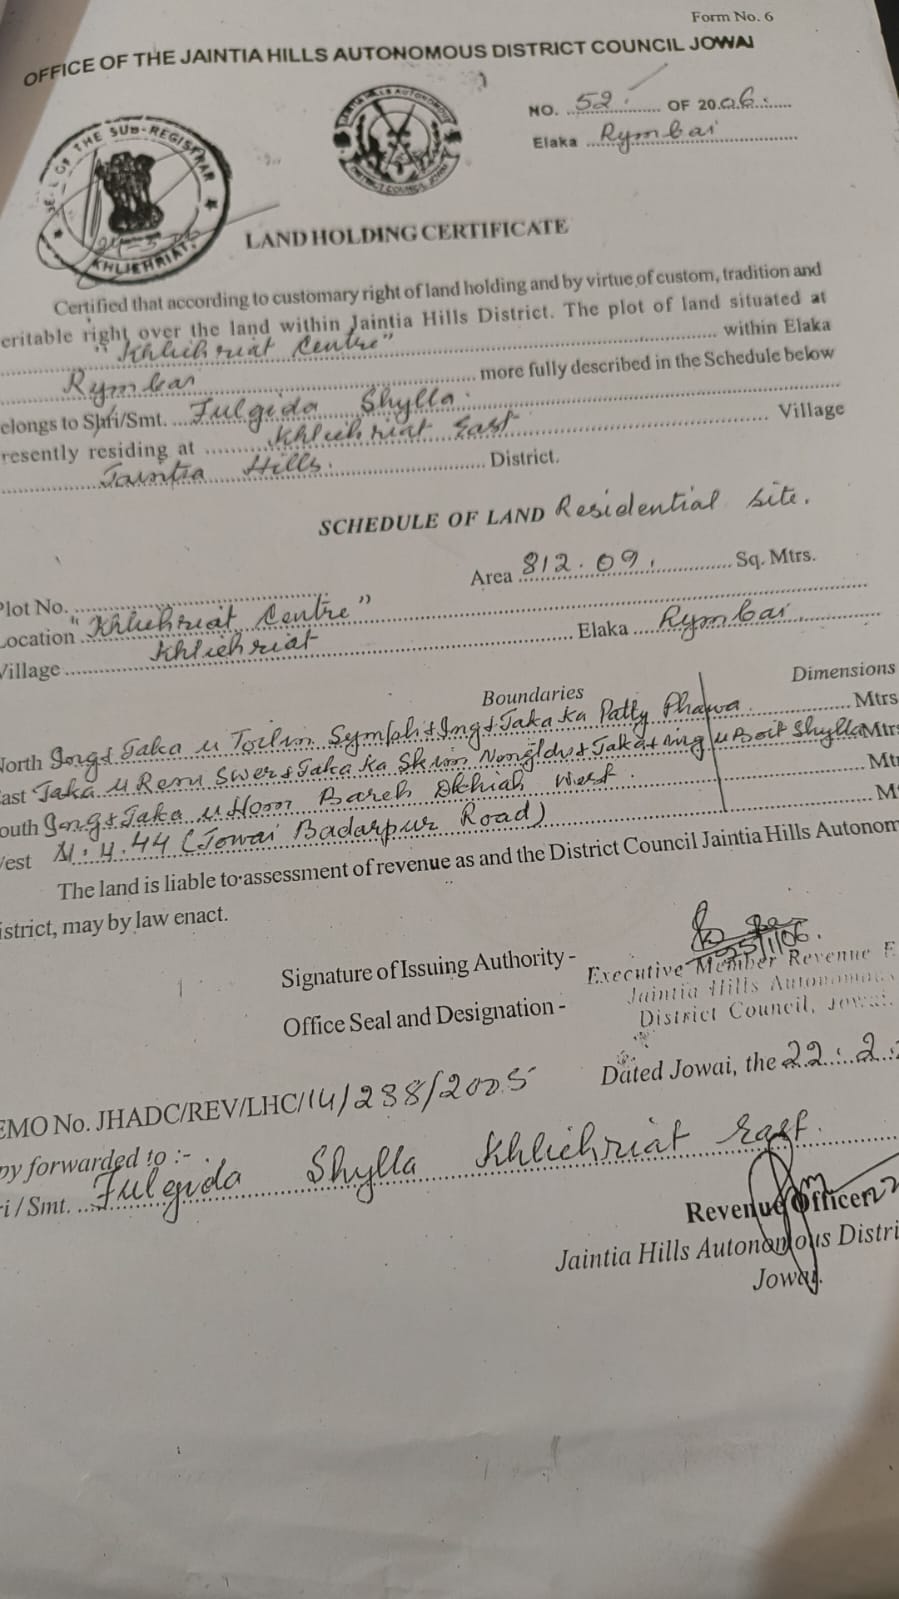 Form No. 6
OFFICE OF THE JAINTIA HILLS AUTONOMOUS DISTRICT COUNCIL JOWAI
NO. 52 OF 2006.
Elaka Rymbai
OF THE SUB-REGISTRAR
KHLIEHRIAT
LAND HOLDING CERTIFICATE
Certified that according to customary right of land holding and by virtue of custom, tradition and
eritable right over the land within Jaintia Hills District. The plot of land situated at
"Khliehriat Centre" within Elaka
Rymbai more fully described in the Schedule below
elongs to Shri/Smt. Fulgida Shylla.
resently residing at Khliehriat East Village
Jaintia Hills. District.
SCHEDULE OF LAND Residential site.
Area 812.09. Sq. Mtrs.
Plot No.
Location "Khliehriat Centre"
Village Khliehriat Elaka Rymbai
Boundaries Dimensions
North Ing & Jaka u Toilin Symphit & Ing & Jaka ka Patty Phawa Mtrs
ast Jaka u Remu Swer & Jaka ka Skim Nongldu & Jaka & ing u Boit Shylla Mtrs
outh Ing & Jaka u Hoon Bareh Okhiah West. Mt
West N.H.44 (Jowai Badarpur Road) M
The land is liable to assessment of revenue as and the District Council Jaintia Hills Autonom
istrict, may by law enact.
Signature of Issuing Authority -
25/1/06.
Executive Member Revenue E
Jaintia Hills Autonomous
Office Seal and Designation -
District Council, Jowai.
Dated Jowai, the 22.2.
EMO No. JHADC/REV/LHC/14/238/2005
py forwarded to :-
ri / Smt. Fulgida Shylla Khliehriat East.
Revenue Officer
Jaintia Hills Autonomous Distri
Jowai.